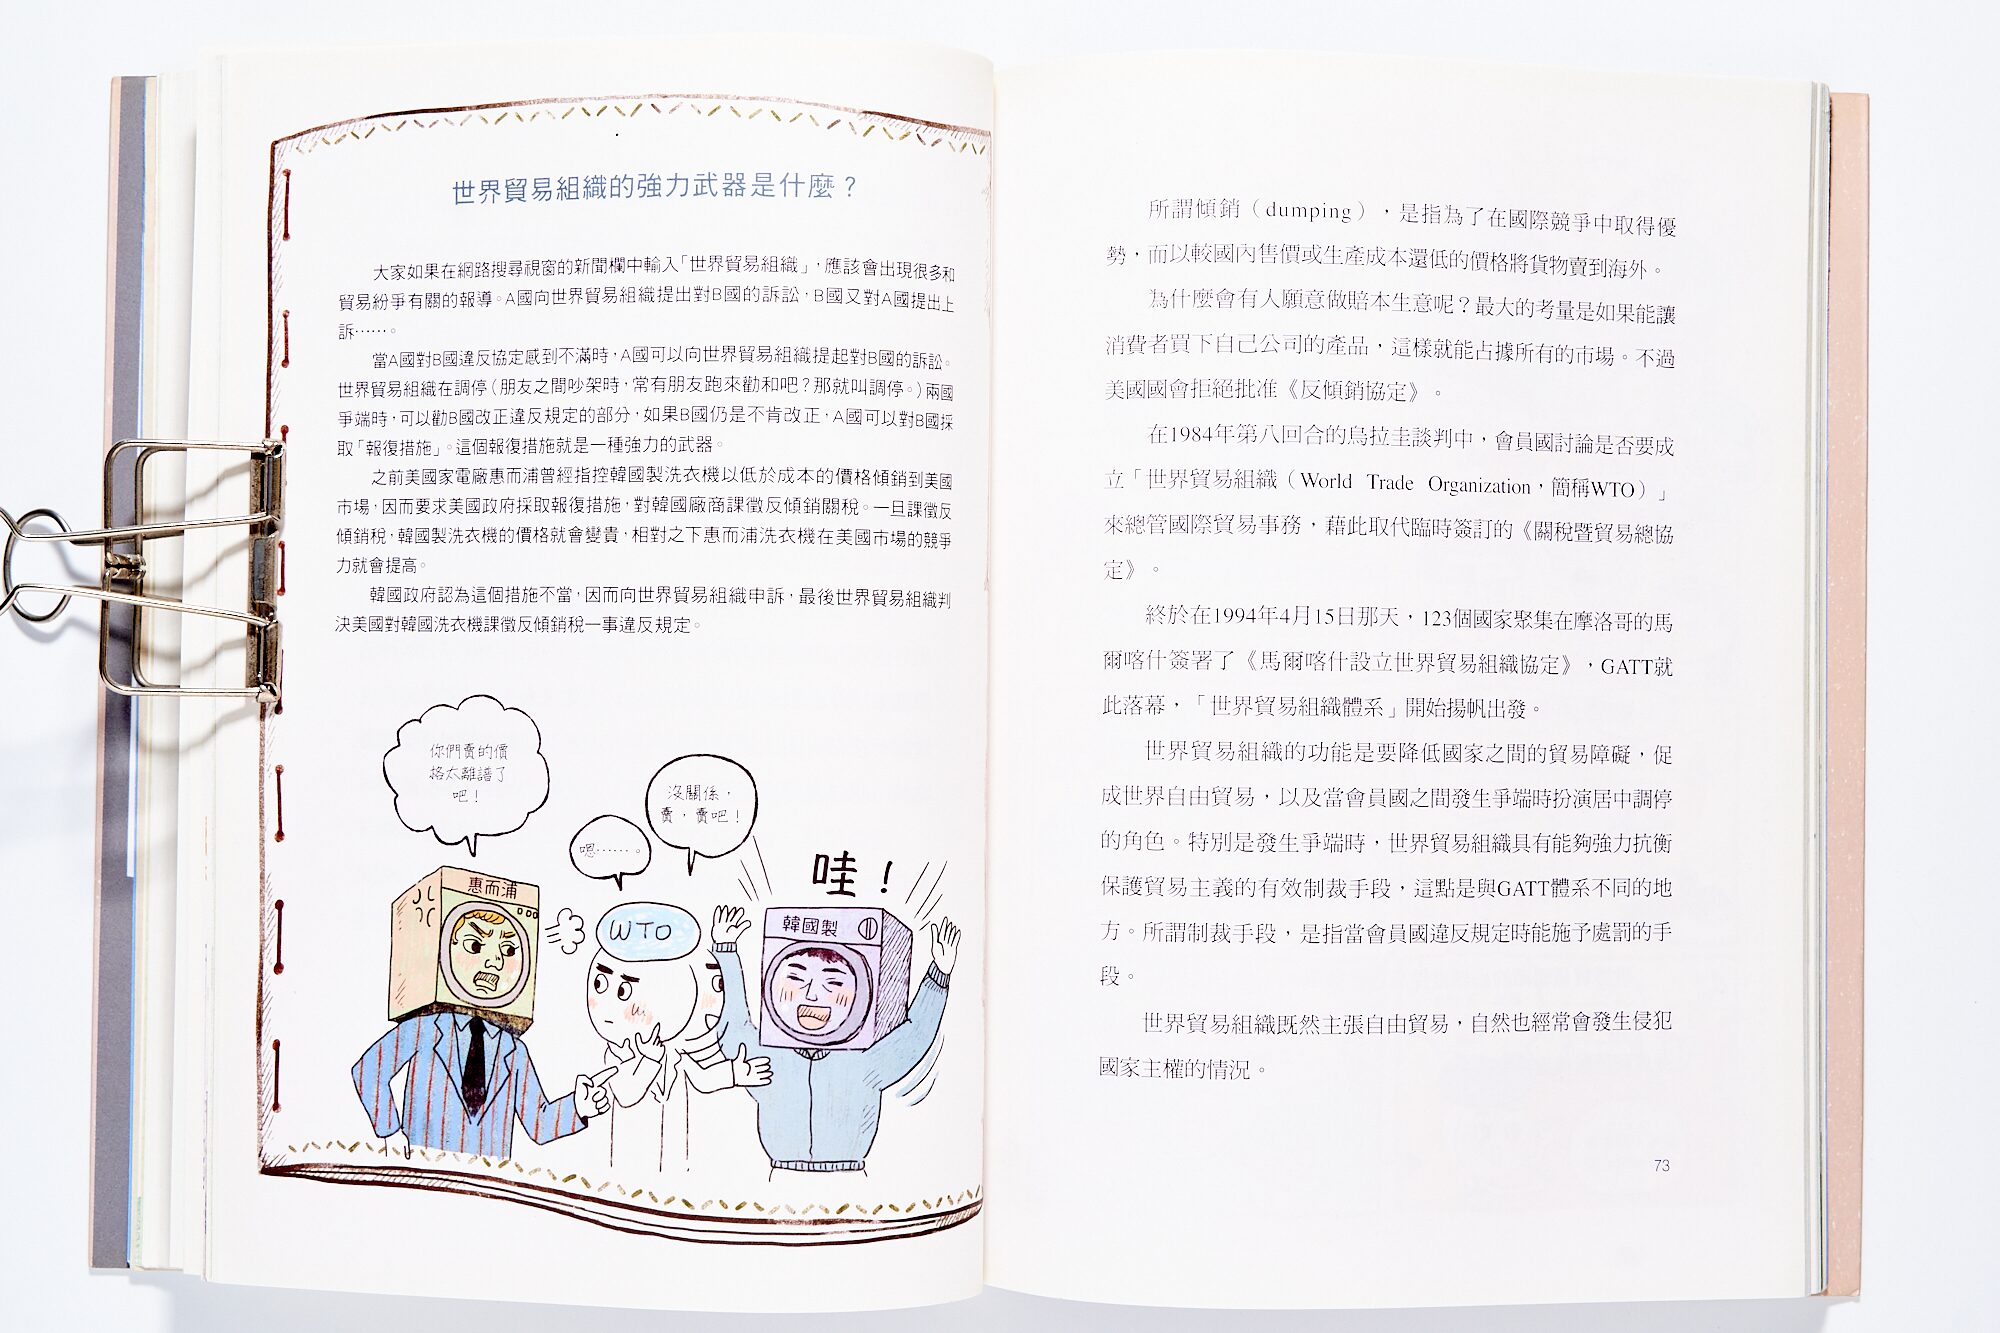 世界貿易組織的強力武器是什麼？
大家如果在網路搜尋視窗的新聞欄中輸入「世界貿易組織」，應該會出現很多和
貿易紛爭有關的報導。A國向世界貿易組織提出對B國的訴訟，B國又對A國提出上
訴……。
當A國對B國違反協定感到不滿時，A國可以向世界貿易組織提起對B國的訴訟。
世界貿易組織在調停（朋友之間吵架時，常有朋友跑來勸和吧？那就叫調停。）兩國
爭端時，可以勸B國改正違反規定的部分，如果B國仍是不肯改正，A國可以對B國採
取「報復措施」。這個報復措施就是一種強力的武器。
之前美國家電廠惠而浦曾經指控韓國製洗衣機以低於成本的價格傾銷到美國
市場，因而要求美國政府採取報復措施，對韓國廠商課徵反傾銷關稅。一旦課徵反
傾銷稅，韓國製洗衣機的價格就會變貴，相對之下惠而浦洗衣機在美國市場的競爭
力就會提高。
韓國政府認為這個措施不當，因而向世界貿易組織申訴，最後世界貿易組織判
決美國對韓國洗衣機課徵反傾銷稅一事違反規定。
你們賣的價
格太離譜了
吧！
嗯……。
沒關係，
賣，賣吧！
哇！
惠而浦
WTO
韓國製
所謂傾銷（dumping），是指為了在國際競爭中取得優
勢，而以較國內售價或生產成本還低的價格將貨物賣到海外。
為什麼會有人願意做賠本生意呢？最大的考量是如果能讓
消費者買下自己公司的產品，這樣就能占據所有的市場。不過
美國國會拒絕批准《反傾銷協定》。
在1984年第八回合的烏拉圭談判中，會員國討論是否要成
立「世界貿易組織（World Trade Organization，簡稱WTO）」
來總管國際貿易事務，藉此取代臨時簽訂的《關稅暨貿易總協
定》。
終於在1994年4月15日那天，123個國家聚集在摩洛哥的馬
爾喀什簽署了《馬爾喀什設立世界貿易組織協定》，GATT就
此落幕，「世界貿易組織體系」開始揚帆出發。
世界貿易組織的功能是要降低國家之間的貿易障礙，促
成世界自由貿易，以及當會員國之間發生爭端時扮演居中調停
的角色。特別是發生爭端時，世界貿易組織具有能夠強力抗衡
保護貿易主義的有效制裁手段，這點是與GATT體系不同的地
方。所謂制裁手段，是指當會員國違反規定時能施予處罰的手
段。
世界貿易組織既然主張自由貿易，自然也經常會發生侵犯
國家主權的情況。
73